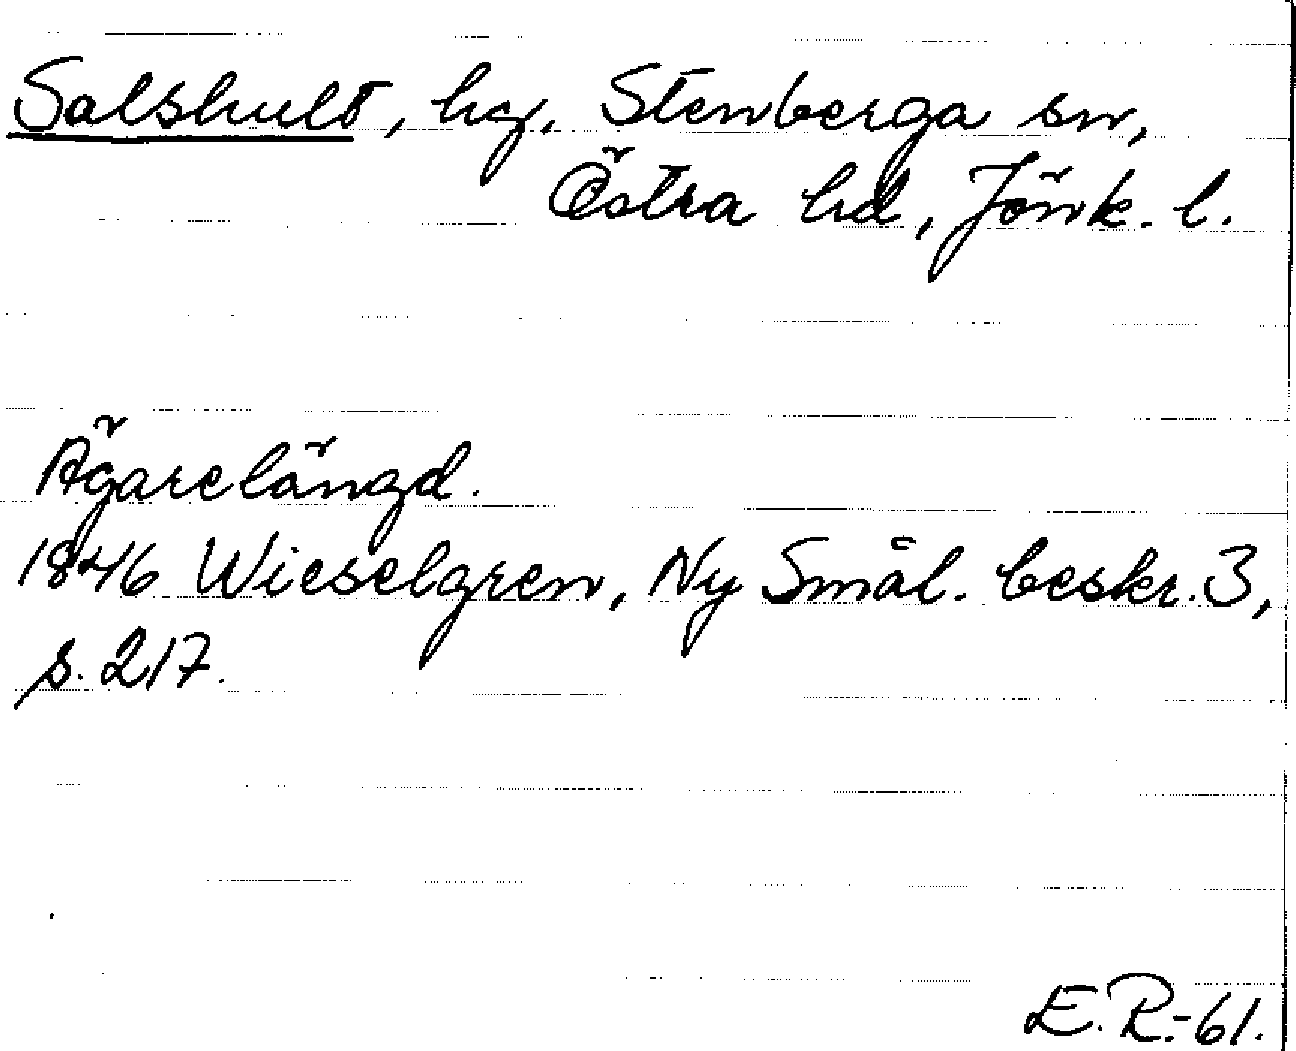 Salshult, hg, Stenberga sn,
Östra hd, Jönk. l.
Ägarelängd.
1846 Wieselgren, Ny Smål. beskr. 3,
s. 217.
E.R.-61.